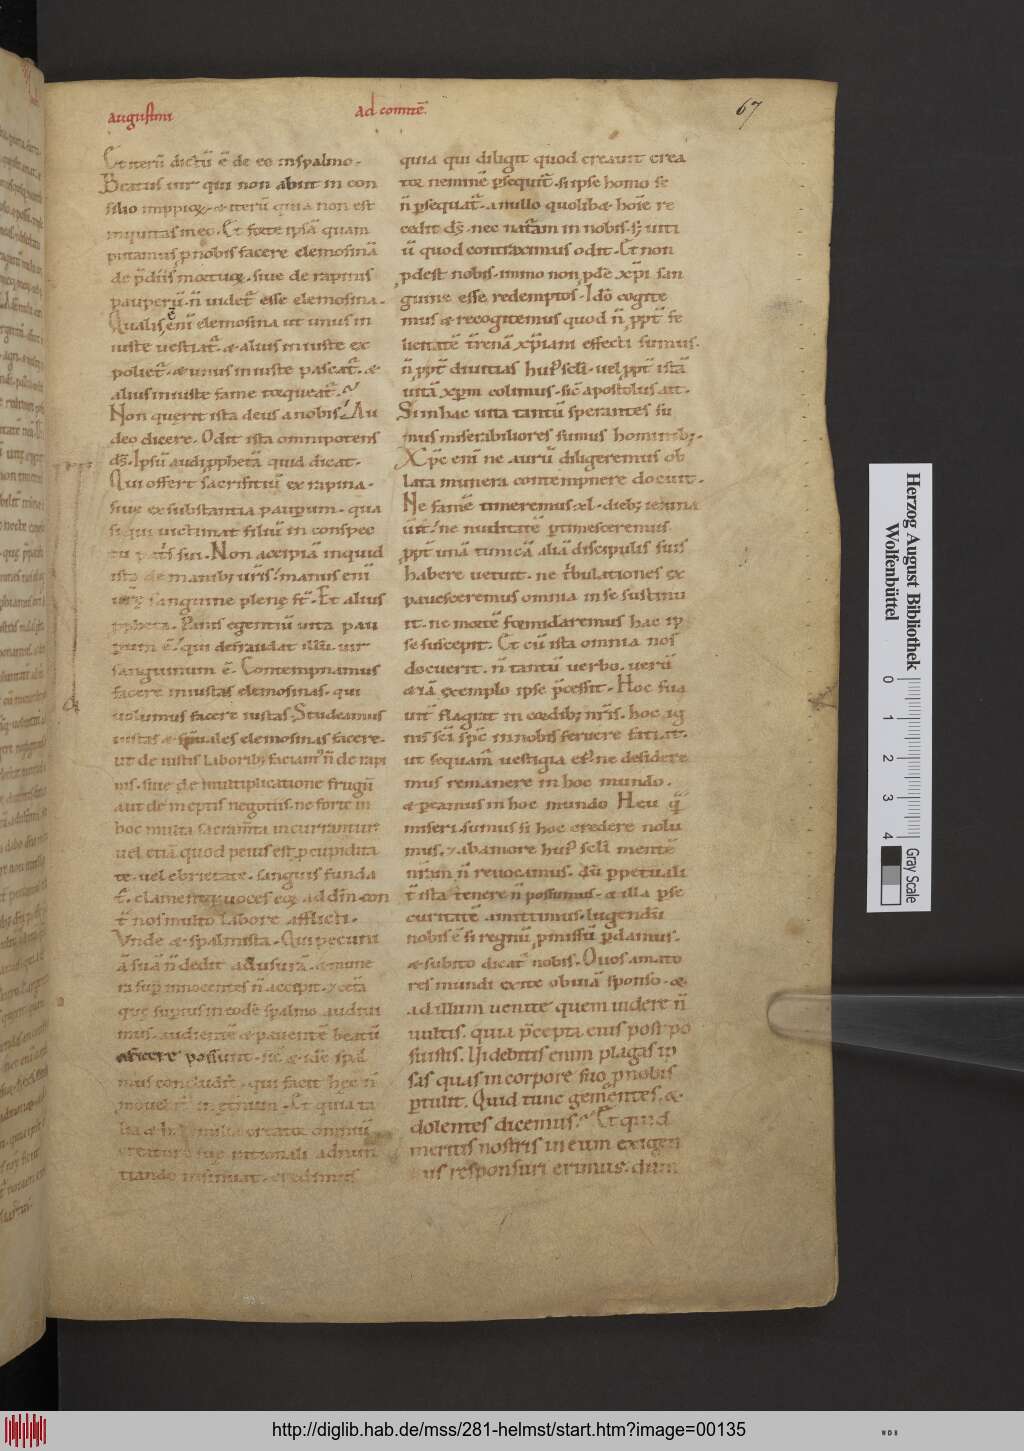 augustini
ad comitē.
67
Et iterū dictū ē de eo in spalmo.
Beatus uir qui non abiit in con
silio impiorum. & iterū quia non est
iniquitas in eo. Et forte ipsā quam
putamus pro nobis facere elemosinā
de p̄diis mortuorum. siue de rapinis
pauperū. n̄ uidet̄ esse elemosina.
Qualis enī elemosina ut unus in
iuste uestiat̄. & alius iniuste ex
poliet̄. & unus iniuste pascat̄. &
alius iniuste fame torqueat̄.
Non querit ista deus a nobis. Au
deo dicere. Odit ista omnipotens
ds̄. Ipsū audi pphetā quid dicat.
Qui offert sacrifitiū ex rapina.
siue ex substantia paupum. qua
si qui uictimat filiū in conspec
tu pat̄s sui. Non accipiā inquid
ista de manibꝫ ur̄is. manus enī
ur̄e sanguine plene st̄. Et alius
ppheta. Panis egentiū uita pau
pum ē. qui defraudat illū. uir
sanguinum ē. Contempnamus
facere iniustas elemosinas. qui
uolumus facere iustas. Studeamus
iustas & spūales elemosinas facere.
ut de iustis laboribꝫ faciam' n̄ de rapi
nis. siue de multiplicatione frugū
aut de ineptis negotiis. ne forte in
hoc multa sacram̄ta incurrantur
uel etiā quod peius est. p cupidita
te. uel ebrietate. sanguis funda
t̄. clamentque uoces eorum ad dn̄m con
t̄ nos multo labore afflicti.
Vnde & spalmista. Qui pecuni
ā suā n̄ dedit ad usurā. & mune
ra sup innocentes n̄ accepit. & cetā
que supius in eodē spalmo audiui
mus. audientē & pauentē beatū
efficere possunt. sic & idē spal
mus concludit. qui facit hęc n̄
mouebit̄ in et̄num. Et quia ta
lia &
creature sue rationali adnun
tiando insinuat.
quia qui diligit quod creauit crea
tor neminē p̄sequit̄. si ipse homo se
n̄ p̄sequat̄. a nullo quolib& hoīe re
cedit ds̄. nec nat̄am in nobis. sꝫ uiti
ū quod contraximus odit. Et non
pdest nobis. immo non pdē xp̄i san
guine esse redemptos. Idō cogite
mus & recogitemus quod n̄ ppt̄ fe
licitatē t̄renā xp̄iani effecti sumus.
n̄ ppt̄ diuitias hui' scl̄i. uel ppt̄ istā
uitā xp̄m colimus. sic̄ apostolus ait.
Si in hac uita tantū sperantes su
mus miserabiliores sumus hominibꝫ.
Xp̄c enī ne aurū diligeremus ob
lata munera contempnere docuit.
Ne famē timeremus. xl. diebꝫ ieiuna
uit. ne nuditatē p̄timesceremus
ppt̄ unā tunicā aliā discipulis suis
habere uetuit. ne t̄bulationes ex
pauesceremus omnia in se sustinu
it. ne mortē formidaremus hac ip
se suscepit. Et cū ista omnia nos
docuerit. n̄ tantū uerbo. uerū
& iā exemplo ipse p̄cessit. Hoc sua
uit̄ flagrat in cordibꝫ nr̄is. hoc ig
nis scī sp̄c in nobis feruere faciat.
ut sequam̄ uestigia ei'. ne desidere
mus remanere in hoc mundo.
& pcamus in hoc mundo Heu q̄
miseri sumus si hoc credere nolu
mus. & ab amore hui' scl̄i mentē
nr̄am n̄ reuocamus. dū ppetuali
t̄ ista tenere n̄ possumus. & illa p̄se
curitatē amittimus. lugendū
nobis ē si regnū pmissū pdamus.
& subito dicat̄ nobis. O uos amato
res mundi exite obuiā sponso. &
ad illum uenite quem uidere n̄
uultis. quia p̄cepta eius post po
suistis. Uidebitis enim plagas ip
sas quas in corpore suo pnobis
ptulit. Quid tunc gementes. &
dolentes dicemus. Et quid
meritis nostris in eum exigen
tis responsuri erimus. dum
Herzog August Bibliothek
Wolfenbüttel
0 1 2 3 4
Gray Scale
http://diglib.hab.de/mss/281-helmst/start.htm?image=00135
WDB